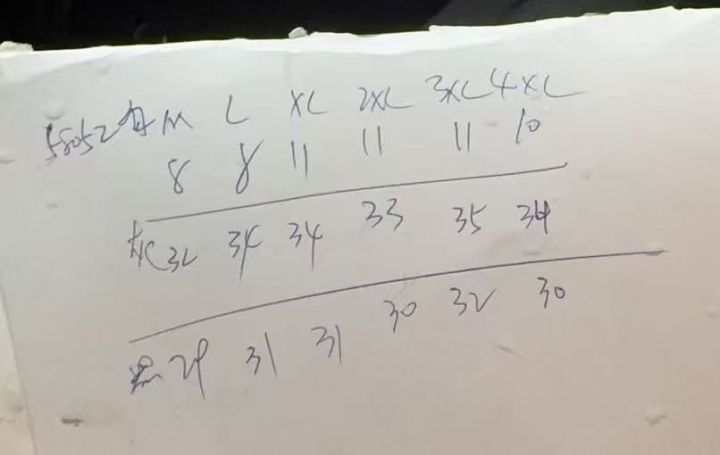 58052 白 M L XL 2XL 3XL 4XL
8 8 11 11 11 10
灰 32 34 34 33 35 34
黑 29 31 31 30 32 30